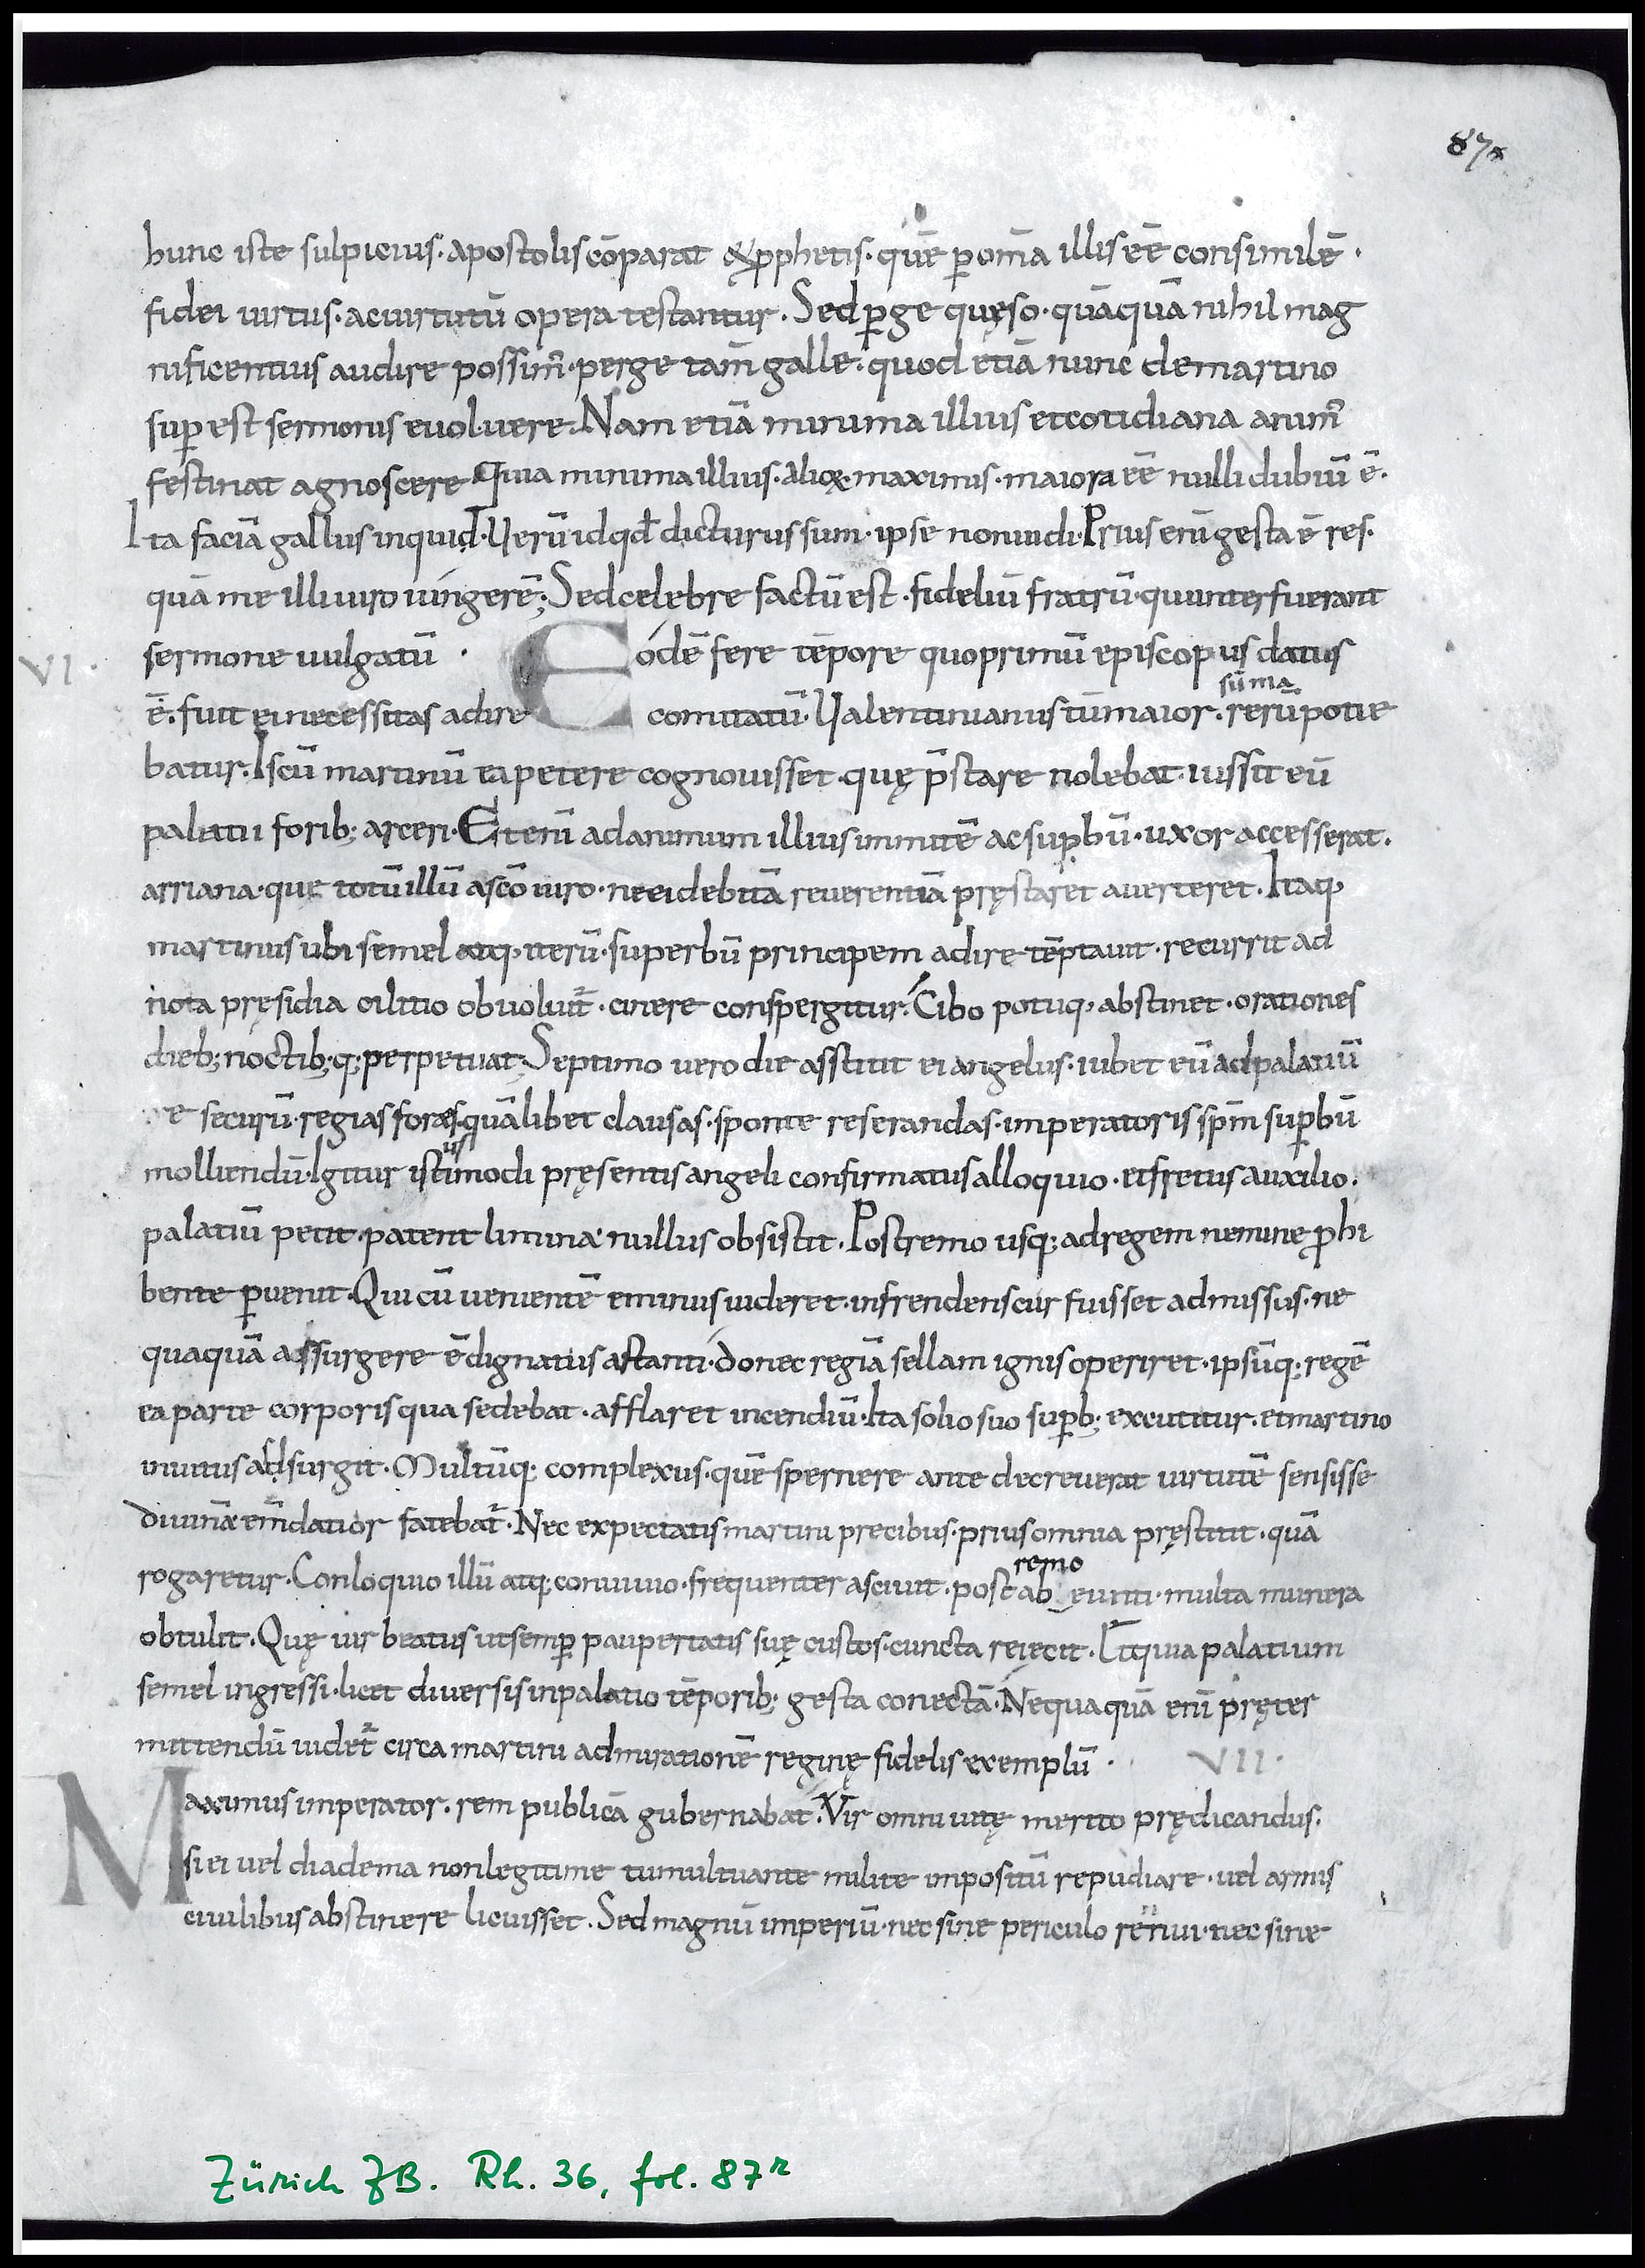 87
hunc iste sulpicius. apostolis cōparat & pphetis. quē p̱ om̄a illis eē consimilē.
fidei uirtus. ac uirtutū opera testantur. Sed p̱ge quęso. quāquā nihil mag
nificentius audire possim̄. perge tam̄ galle. quod etiā nunc de martino
sup̱ est sermonis euoluere. Nam etiā minima illius et cotidiana anim̄
festinat agnoscere Quia minima illius. aliox maximis. maiora eē nulli dubiū ē.
Ita faciā gallus inquid. Uerū id qđ dicturus sum. ipse non uidi. Prius enī gesta ē res.
quā me illi uiro iungerē; Sed celebre factū est. fideliū fratrū. qui interfuerant
sermone uulgatū. Eodē fere tēpore quo primū episcopus datus
VI.
ē. fuit ei necessitas adire comitatū. Ualentinianus tū maior. rerū potie
sūma
batur. Is cū martinū ea petere cognouisset. quę p̄stare nolebat. iussit eū
palatii forib; arceri. Etenī ad animum illius inmitē ac sup̱bū. uxor accesserat.
arriana. que totū illū a scō uiro. ne ei debitā reuerentiā pręstaret auerteret. Itaq,
martinus ubi semel atq, iterū. superbū principem adire tēptauit. recurrit ad
nota pręsidia cilitio obuoluit̄. cinere conspergitur. Cibo potuq, abstinet. orationes
dieb; noctib; q; perpetuat. Septimo uero die asstitit ei angelus. iubet eū ad palatiū
re securū. regias fores quālibet clausas. sponte reserandas. imperatoris spm̄ sup̱bū
molliendū. Igitur istimodi pręsentis angeli confirmatus alloquio. et fretus auxilio.
ius
palatiū petit. patent limina. nullus obsistit. Postremo usq; ad regem nemine p̱hi
bente p̱uenit. Qui cū uenientē eminus uideret. infrendens cur fuisset admissus. ne
quaquā assurgere ē dignatus astanti. donec regiā sellam ignis operiret. ipsūq; regē
ea parte corporis qua sedebat. afflaret incendiū. Ita solio suo sup̱b; excutitur. et martino
inuitus adsurgit. Multūq; complexus. quē spernere ante decreuerat uirtutē sensisse
diuinā em̄datior fatebat̄. Nec expectatis martini precibus. prius omnia pręstitit. quā
rogaretur. Conloquio illū atq; conuiuio. frequenter asciuit. post ab eunti. multa munera
remo
obtulit. Quę uir beatus ut semp̱ paupertatis suę custos. cuncta reiecit. Et quia palatium
semel ingressi. licet diuersis in palatio tēporib; gesta conectā. Nequaquā enī pręter
mittendū uidet̄ circa martini admirationē reginę fidelis exemplū.
VII.
Maximus imperator. rem publicā gubernabat. Vir omni uitę merito prędicandus.
si ei uel diadema non legitime tumultuante milite impositū repudiare. uel armis
ciuilibus abstinere licuisset. Sed magnū imperiū. nec sine periculo renui. nec sine
Zürich ZB. Rh. 36, fol. 87r